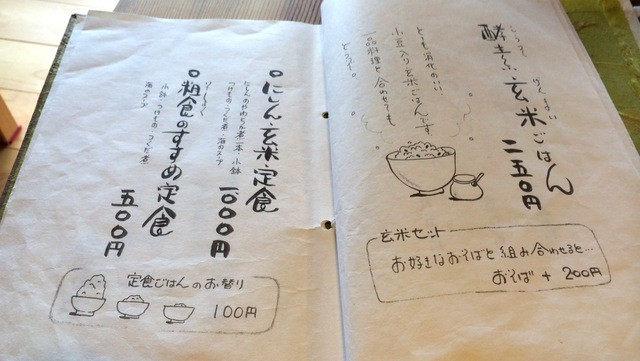 酵素玄米ごはん 二五〇円
こうそ げんまい
とても消化のいい
小豆入り玄米ごはんです
一品料理と合わせても
どうぞ。
玄米セット
お好きなおそばと組み合わせると…
おそば + 200円
○にしん玄米定食 一〇〇〇円
にしんのやわらか煮一本 小鉢
つけもの つくだ煮 海のスープ
○粗食のすすめ定食 五〇〇円
そしょく
小鉢 つけもの つくだ煮
海のスープ
定食ごはんのお替り
100円